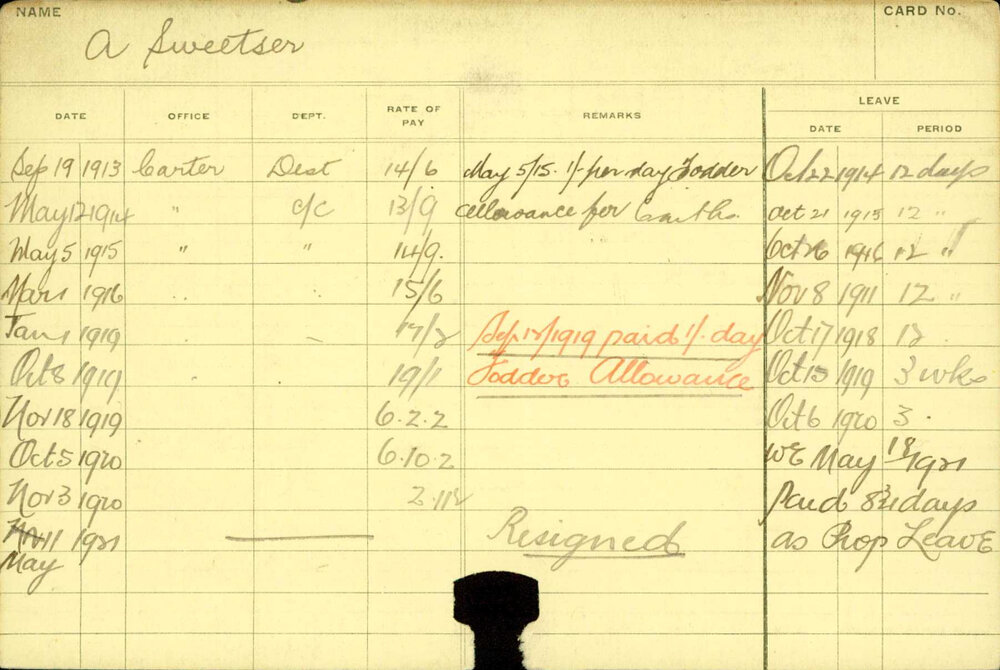 NAME
CARD No.
A Sweetser
LEAVE
DATE OFFICE DEPT. RATE OF PAY REMARKS DATE PERIOD
Sep 19 1913 Carter Dest 14/6 May 5/15. 1/- per day Fodder Oct 22 1914 12 days
May 12 1914 " C/C 13/9 allowance for Oct 21 1915 12 "
May 5 1915 " " 14/9. Oct 26 1916 12 "
Mar 1 1916 15/6 Nov 8 12 "
Jan 1 1919 Sep 12/1919 paid 1/- day Oct 17 1918 12
Oct 8 1919 19/1 Fodder Allowance Oct 15 1919 3 wks
Nov 18 1919 6.2.2 Oct 6 1920 3 "
Oct 5 1920 6.10.2 WE May 18/1921
Nov 3 1920 Paid days
11 1921 Resigned as Prop Leave
May